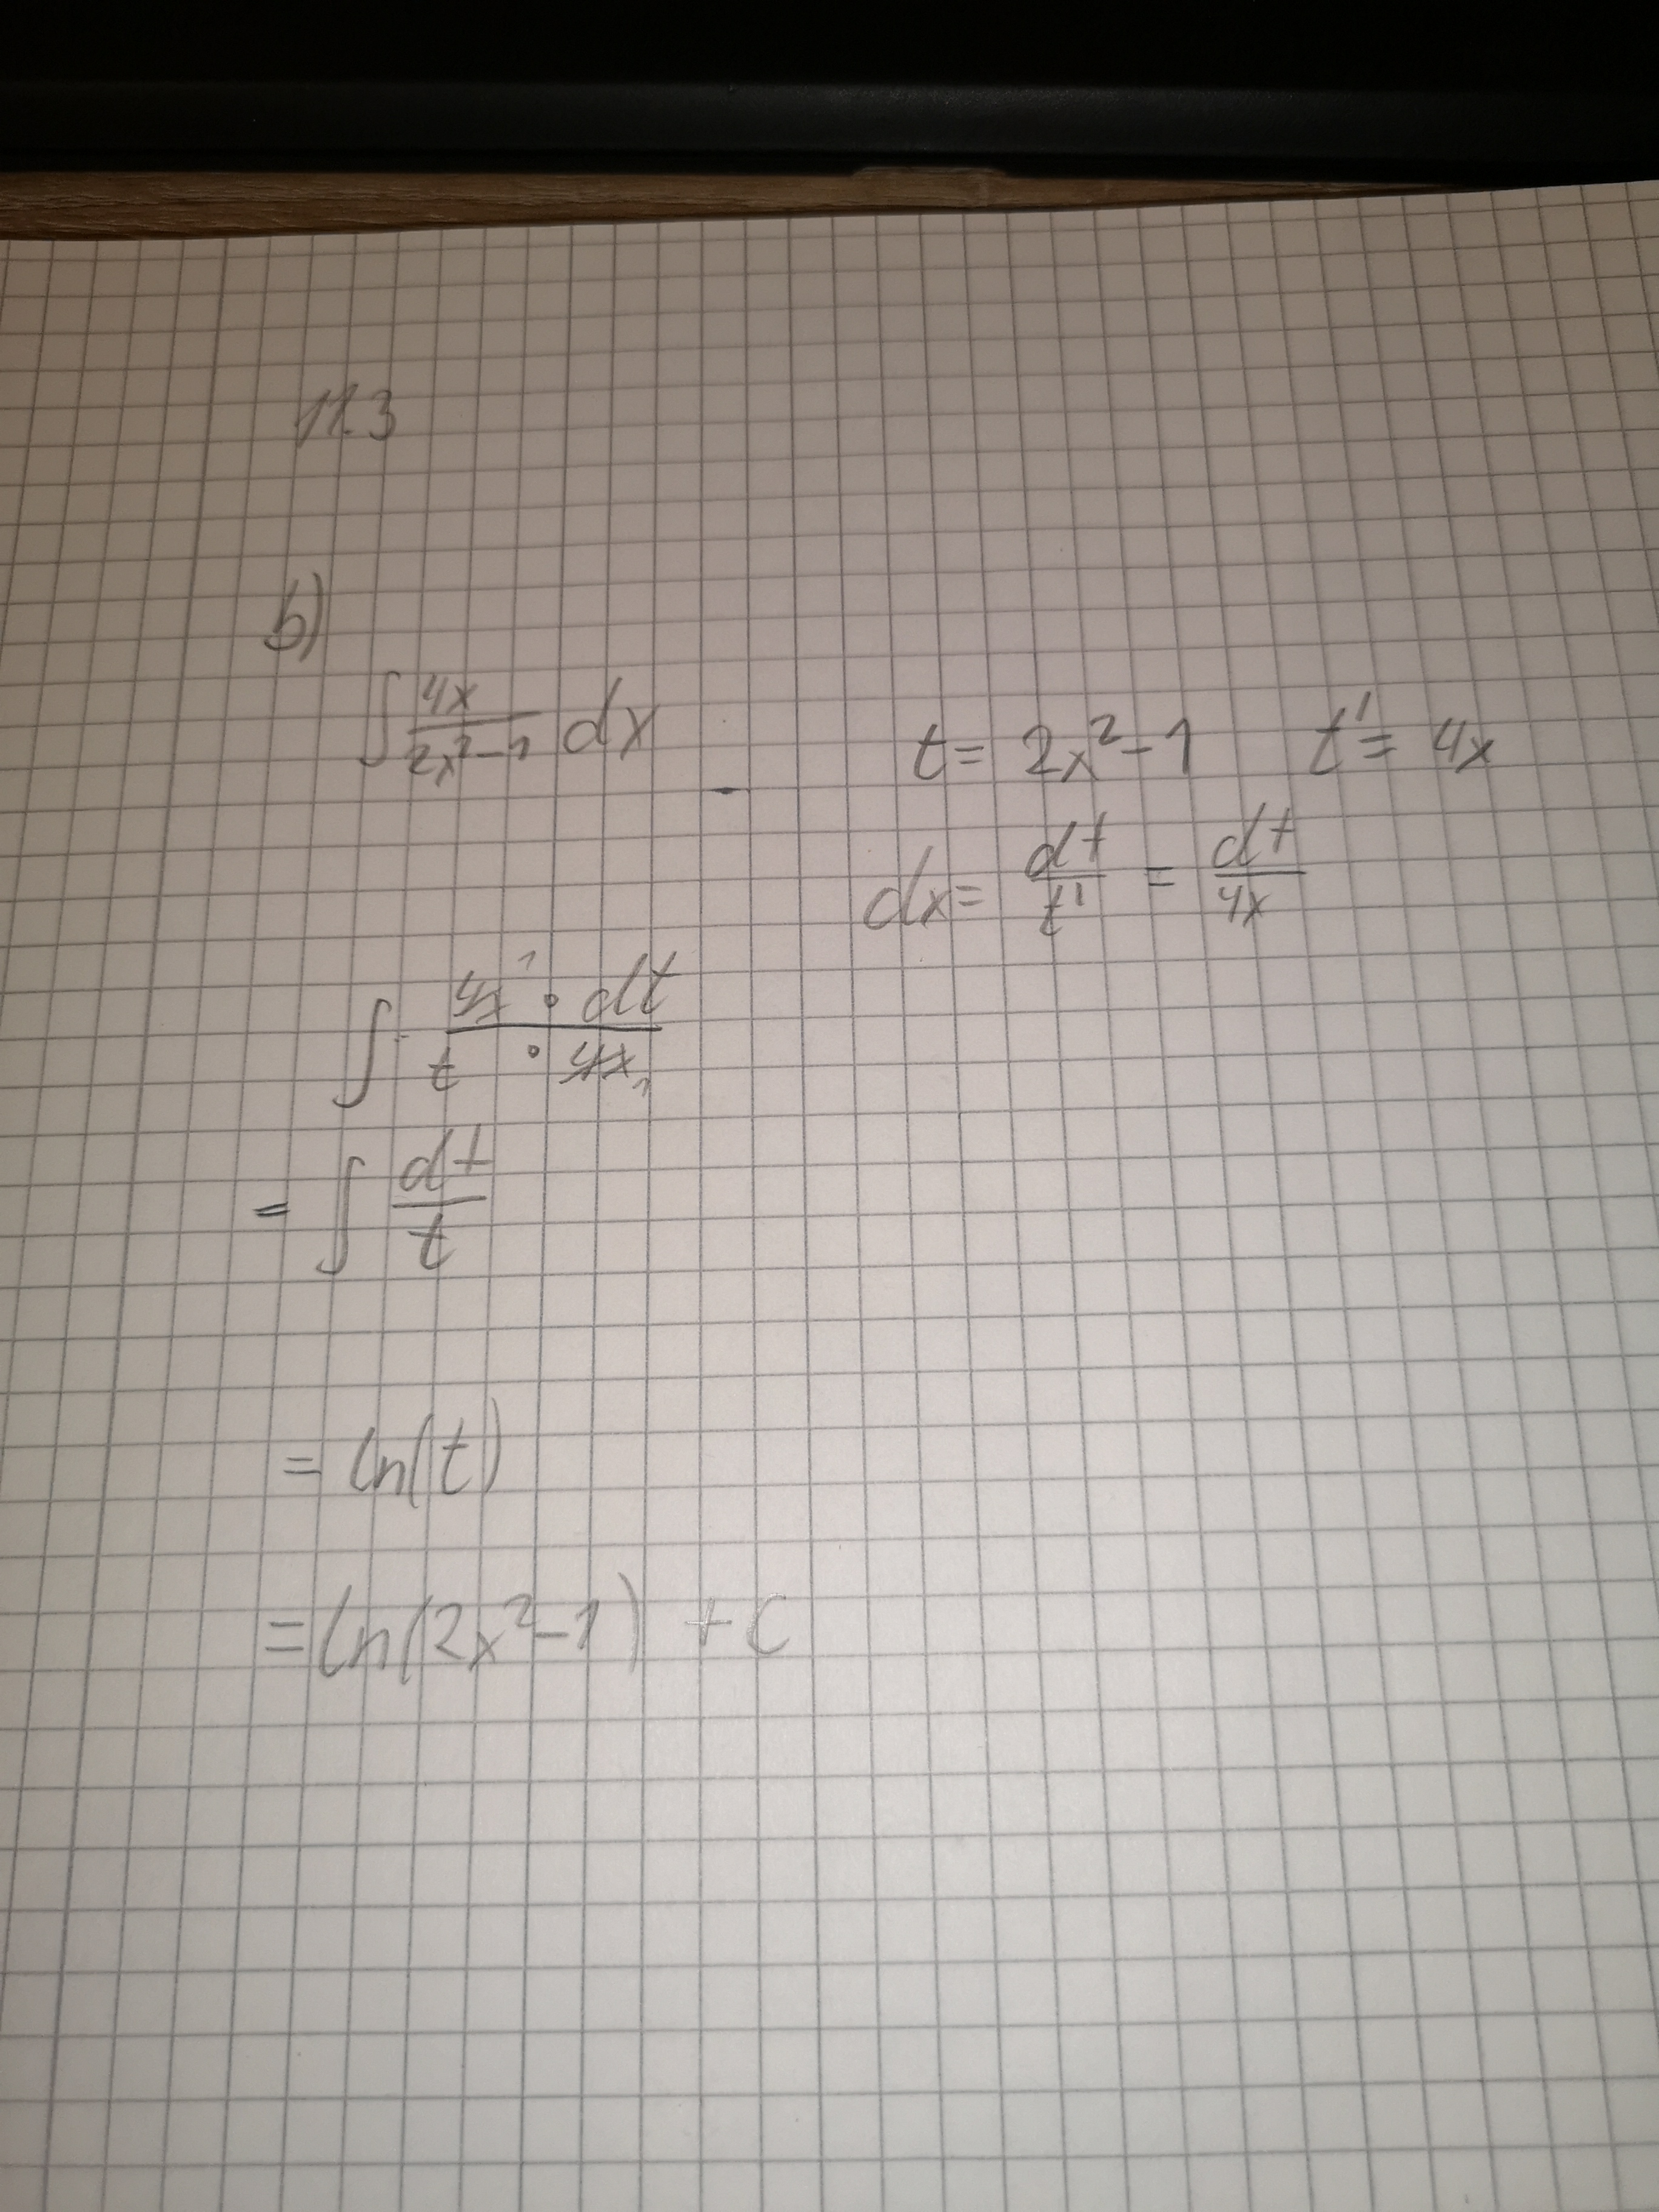 11.3
b)
∫ 4x/(2x²-1) dx    t = 2x²-1    t' = 4x
dx = dt/t' = dt/4x
∫ (4x¹ · dt)/(t · 4x₁)
= ∫ dt/t
= ln(t)
= ln(2x²-1) + C